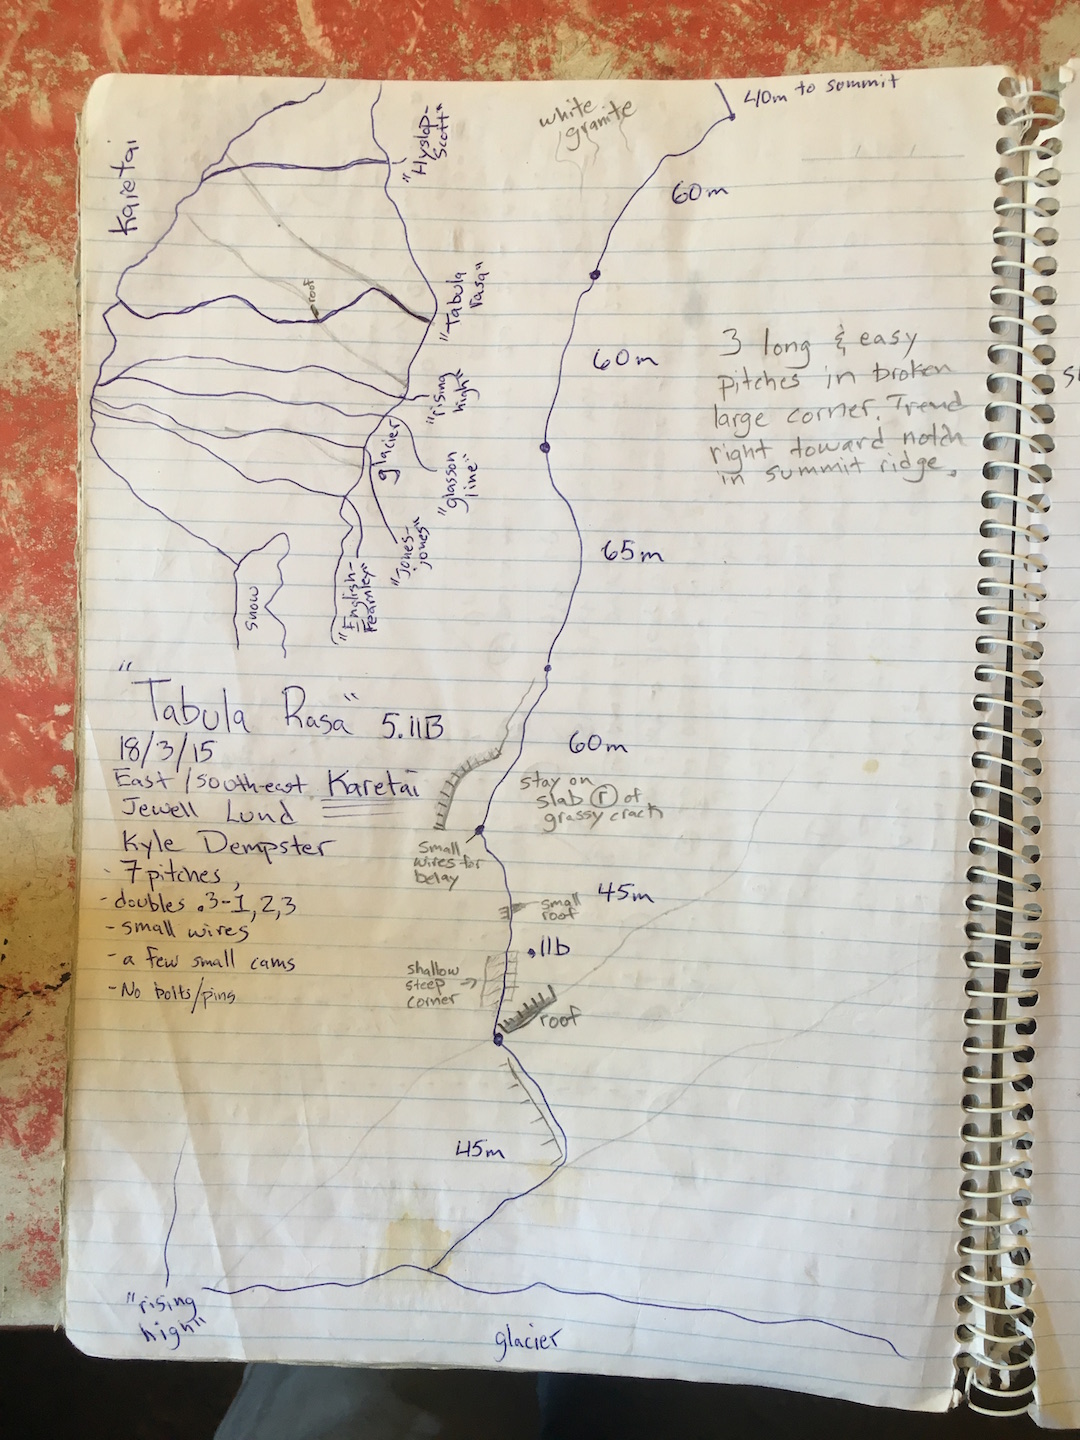 Karetai
"Hyslop-
Scott"
roof
"Tabula
Rasa"
"rising
high"
glacier
"glasson
line"
"Jones-
jones"
"English-
Fearnley"
snow
white
granite
40m to summit
60m
60m
3 long & easy
pitches in broken
large corner. Trend
right toward notch
in summit ridge.
65m
"Tabula Rasa" 5.11B
18/3/15
East/South-east Karetai
Jewell Lund
Kyle Dempster
- 7 pitches,
- doubles .3-1,2,3
- small wires
- a few small cams
- No bolts/pins
60m
stay on
slab r of
grassy crack
small
wires for
belay
45m
small
roof
.11b
shallow
steep
corner
roof
45m
"rising
high"
glacier